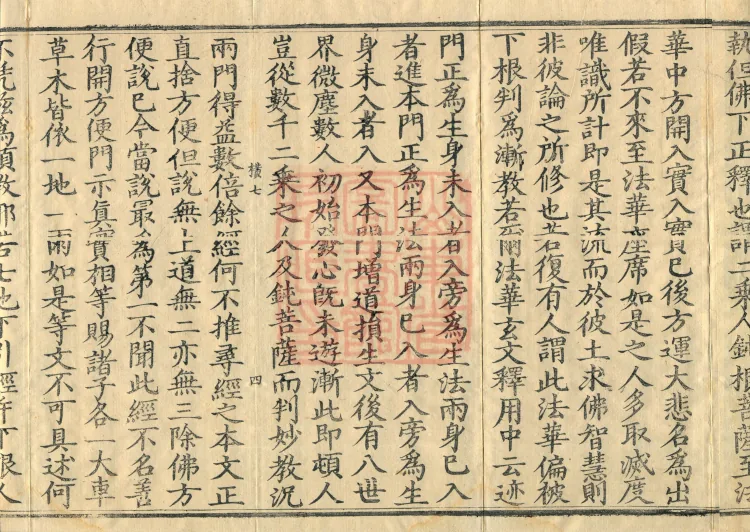 執但佛下正釋也謂二乘人鈍根菩薩至法
華中方開入實入實已後方運大悲名為出
假若不來至法華座席如是之人多取滅度
唯識所計即是其流而於彼土求佛智慧則
非彼論之所修也若復有人謂此法華偏被
下根判為漸教若爾法華玄文釋用中云迹
門正為生身未入者入旁為生法兩身已入
者進本門正為生法兩身已入者入旁為生
身未入者入又本門增道損生文後有八世
界微塵數人初始發心旣未遊漸此即頓人
豈從數千二乘之人及鈍菩薩而判妙教況
橫七
四
兩門得益數倍餘經何不推尋經之本文正
直捨方便但說無上道無二亦無三除佛方
便說已今當說最為第一不聞此經不名善
行開方便門示眞實相等賜諸子各一大車
草木皆依一地一雨如是等文不可具述何